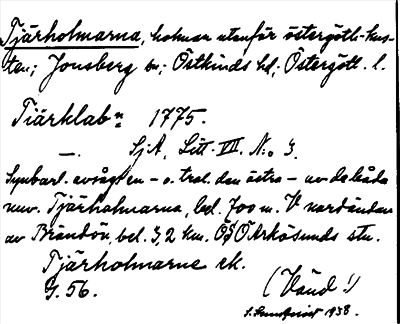 Tjärholmarna, holmar utanför östergötl.-kus-
ten; Jonsberg sn; Östkinds hd; Östergötl. l.
Tiärklabn 1775.
—. SjA, Litt. VII. N:o 3.
Synbarl. avsågs en – o. trol. den östra – av de båda
nuv. Tjärholmarna, bel. 700 m. V nordändan
av Brändön, bel. 3,2 km. ÖSÖ Arkösunds stn.
Tjärholmarne ek.
G. 56. (Vänd!)
1938.